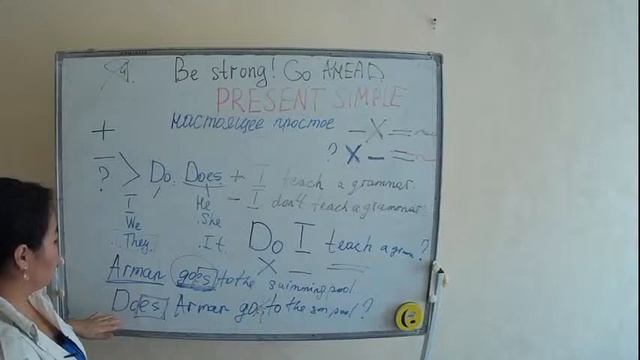 Be strong! Go AHEAD
PRESENT SIMPLE
настоящее простое
+
− X =
? X −
−
? > Do. Does
+ I teach a grammar.
− I don't teach a grammar
I He
We She
They It
Do I teach a gram. ?
X − =
Arman goes to the swimming pool.
Does Arman go to the sm pool ?